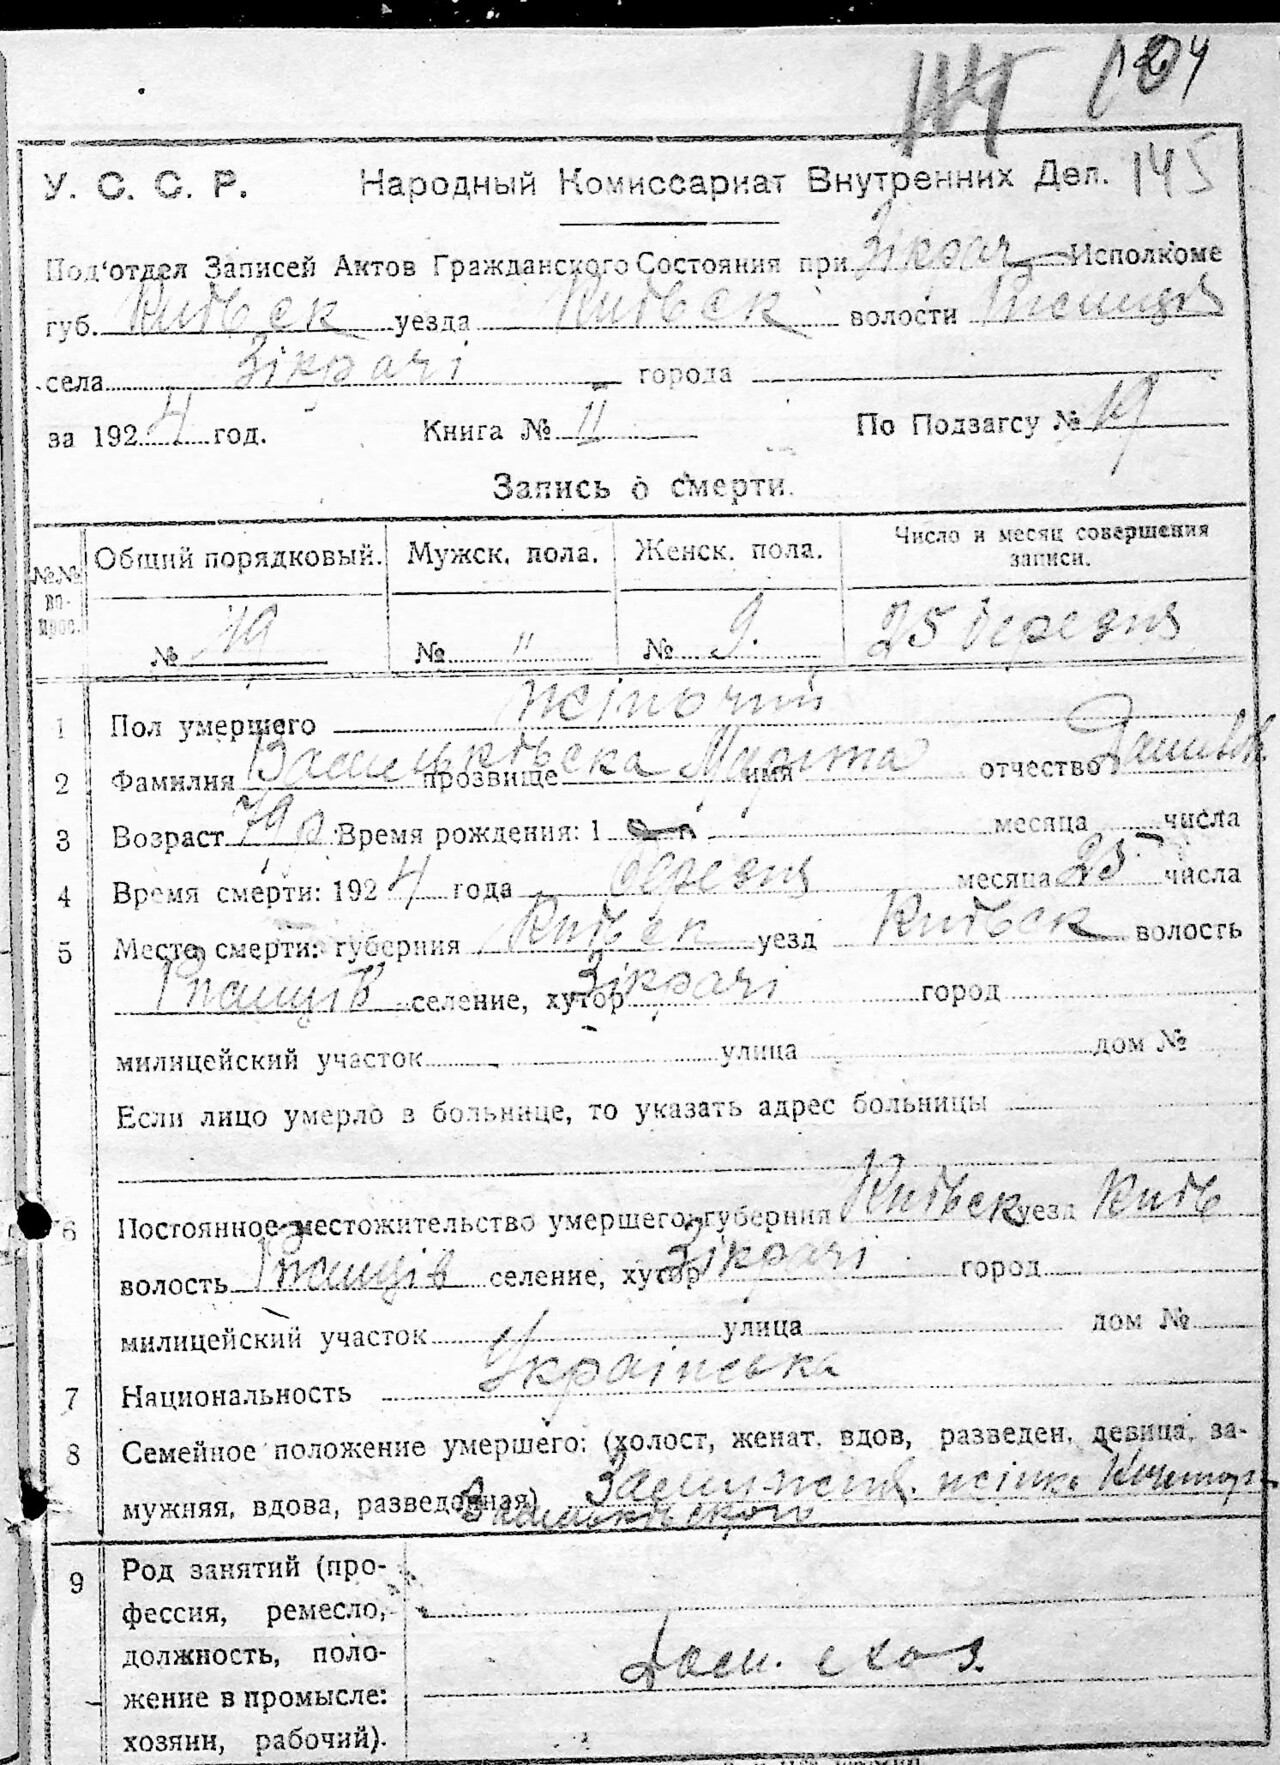 124
145
У. С. С. Р. Народный Комиссариат Внутренних Дел.
Под'отдел Записей Актов Гражданского Состояния при Зікрач Исполкоме
губ. Київськ уезда Київськ волости
села Зікрачі города
за 1924 год. Книга № II По Подзагсу № 19
Запись о смерти.
№№ во- прос. Общий порядковый. Мужск. пола. Женск. пола. Число и месяц совершения записи.
№ 19 № " № 9. 25 березня
1 Пол умершего жіночий
2 Фамилия Васильківська прозвище имя Марта отчество
3 Возраст 79 р. Время рождения: 1 месяца числа
4 Время смерти: 1924 года березня месяца 25 числа
5 Место смерти: губерния Київськ уезд Київськ волость
селение, хутор Зікрачі город
милицейский участок улица дом №
Если лицо умерло в больнице, то указать адрес больницы
6 Постоянное местожительство умершего: губерния Київськ уезд Київ
волость селение, хутор Зікрачі город
милицейский участок улица дом №
7 Национальность Українська
8 Семейное положение умершего: (холост, женат, вдов, разведен, девица, за-
мужняя, вдова, разведенная) жінка
Васильківського
9 Род занятий (про-
фессия, ремесло,
должность, поло-
жение в промысле:
хозяин, рабочий).